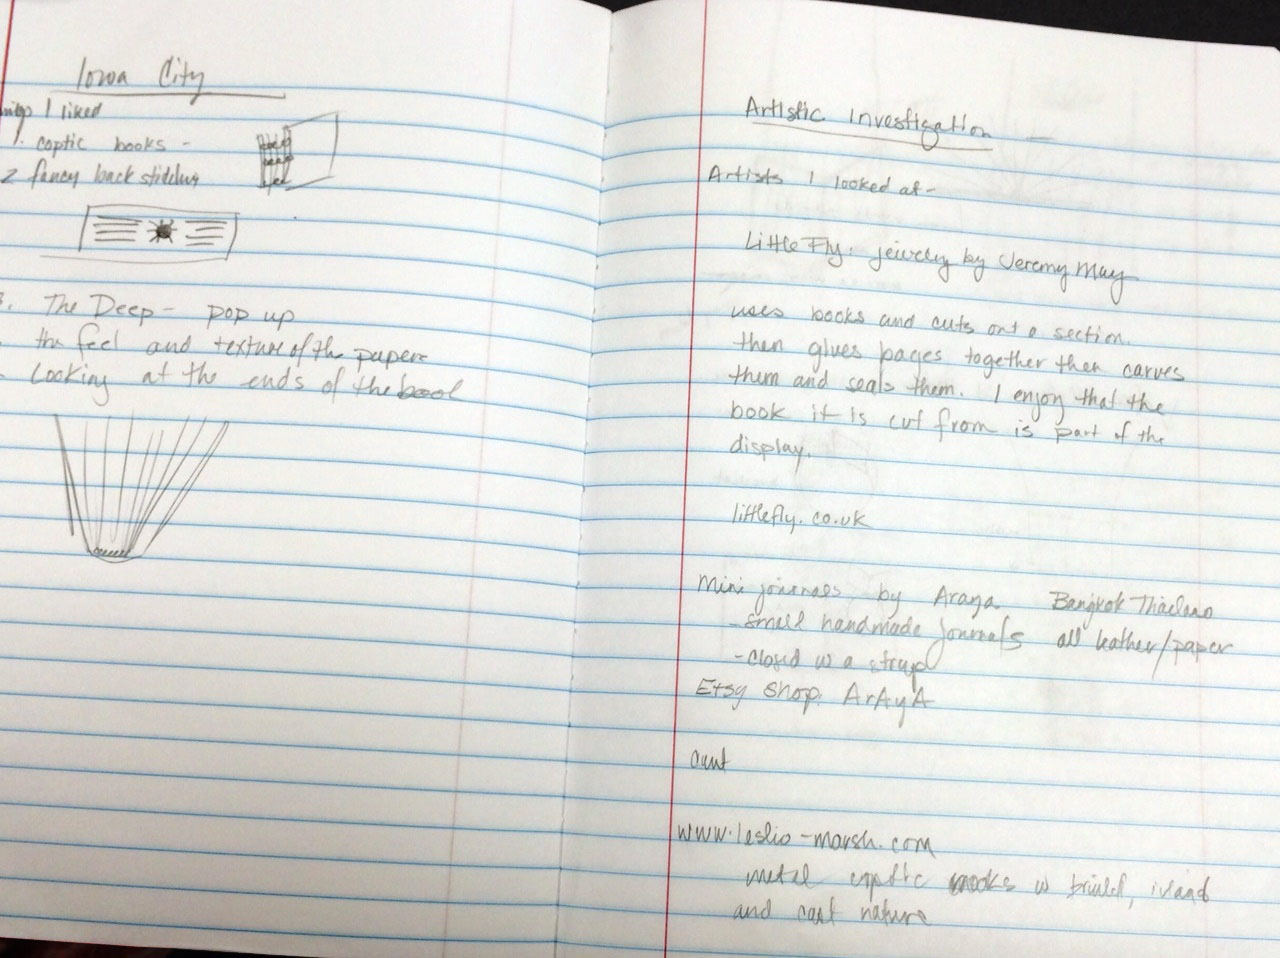 Iowa City
I liked
1. coptic books -
2 fancy back stiching
3. The Deep - pop up
the feel and texture of the papers
Looking at the ends of the book
Artistic Investigation
Artists I looked at -
Little Fly: jewelry by Jeremy May
uses books and cuts out a section.
then glues pages together then carves
them and seals them. I enjoy that the
book it is cut from is part of the
display.
littlefly.co.uk
Mini journals by Araya Bangkok Thailand
- small handmade journals all leather/paper
- closed w a strap
Etsy shop: ArAyA
www.leslie-marsh.com
metal coptic books w
and cast nature